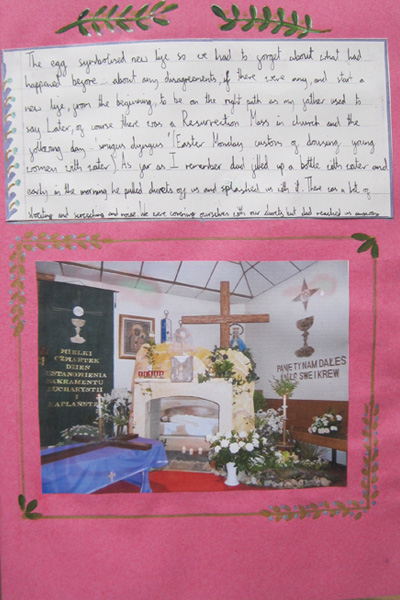 The egg symbolised new life so we had to forget about what had
happened before about any disagreements, if there were any, and start a
new life, from the beginning, to be on the right path as my father used to
say. Later, of course there was a Resurrection Mass in church and the
following day 'smigus dyngus' (Easter Monday custom of dousing young
women with water). As far as I remember dad filled up a bottle with water and
early in the morning he pulled duvets off us and splashed us with it. There was a lot of
shouting and screeching and noise. We were covering ourselves with our duvets but dad reached us anyway
WIELKI
CZWARTEK
DZIEŃ
USTANOWIENIA
SAKRAMENTU
EUCHARYSTII
I
KAPŁAŃSTWA
NAM DAŁEŚ
SWE I KREW